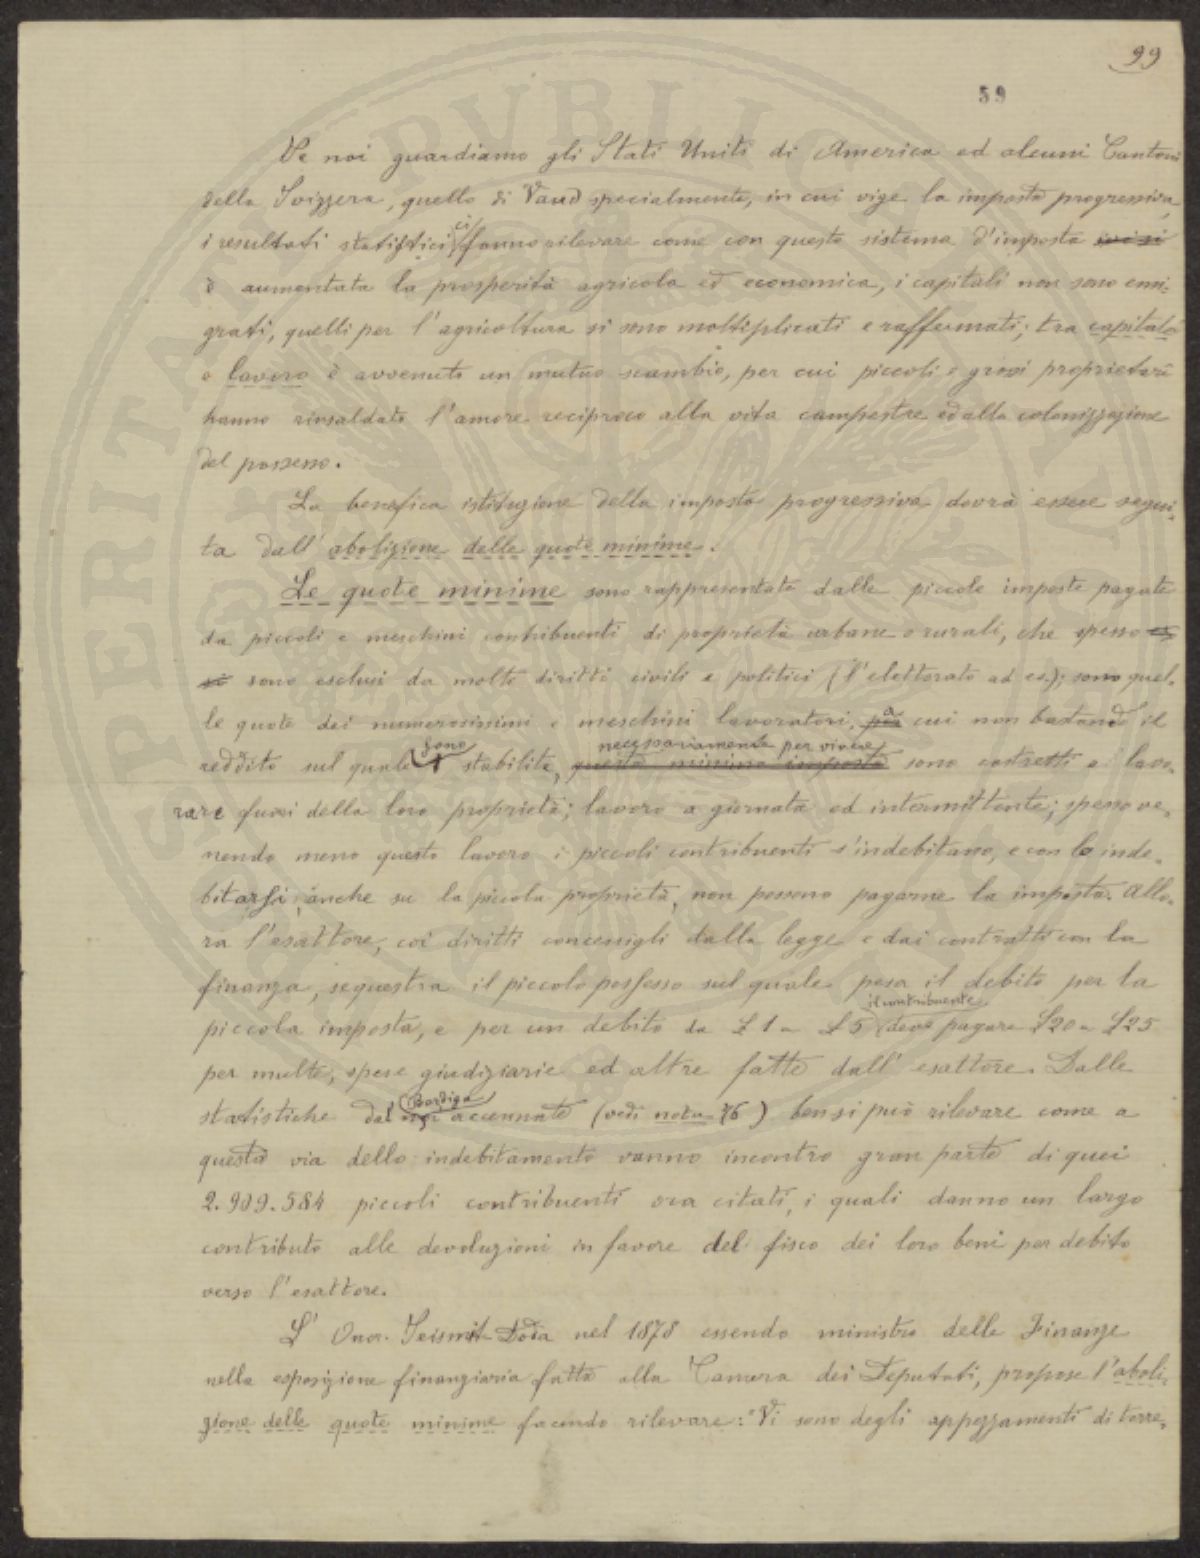 99
59
Se noi guardiamo gli Stati Uniti di America ed alcuni Cantoni
della Svizzera, quello di Vaud specialmente, in cui vige la imposta progressiva,
i resultati statistici ci fanno rilevare come con questo sistema d'imposta
è aumentata la prosperità agricola ed economica, i capitali non sono emi-
grati, quelli per l'agricoltura si sono moltiplicati e raffermati; tra capitale
e lavoro è avvenuto un mutuo scambio, per cui piccoli e grossi proprietarii
hanno rinsaldato l'amore reciproco alla vita campestre ed alla colonizzazione
del possesso.
La benefica istituzione della imposta progressiva dovrà essere segui-
ta dall'abolizione delle quote minime.
Le quote minime sono rappresentate dalle piccole imposte pagate
da piccoli e meschini contribuenti di proprietà urbane o rurali, che spesso
sono esclusi da molti diritti civili e politici (l'elettorato ad es.); sono quel-
le quote dei numerosissimi e meschini lavoratori, per a cui non bastando il
reddito sul quale sono stabilite, questa minima imposta necessariamente per vivere sono costretti a lavo-
rare fuori della loro proprietà; lavoro a giornata ed intermittente; spesso ve-
nendo meno questo lavoro i piccoli contribuenti s'indebitano, e con lo inde-
bitarsi, anche su la piccola proprietà, non possono pagarne la imposta. Allo-
ra l'esattore, coi diritti concessigli dalla legge e dai contratti con la
finanza, sequestra il piccolo possesso sul quale pesa il debito per la
piccola imposta, e per un debito da £ 1 a £ 5 il contribuente deve pagare £20 a £25
per multe, spese giudiziarie ed altre fatte dall'esattore. Dalle
statistiche dal Bordiga accennate (vedi nota 76) ben si può rilevare come a
questa via dello indebitamento vanno incontro gran parte di quei
2.909.584 piccoli contribuenti ora citati, i quali danno un largo
contributo alle devoluzioni in favore del fisco dei loro beni per debito
verso l'esattore.
L'Onor. Seismit-Doda nel 1878 essendo ministro delle Finanze
nella esposizione finanziaria fatta alla Camera dei Deputati, propose l'aboli-
zione delle quote minime facendo rilevare: "Vi sono degli appezzamenti di terre-